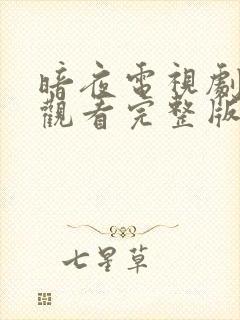 暗夜電視劇
觀看完整版
七星草